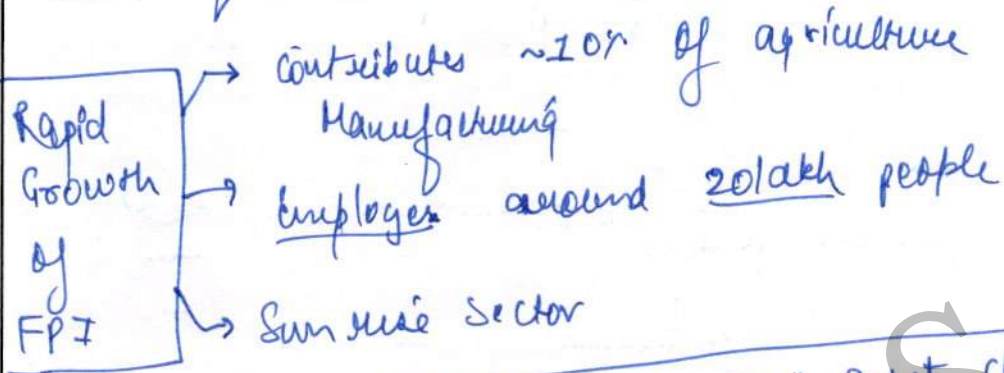 Rapid
Growth
of
FPI
→ Contributes ~10% of agriculture
Manufacturing
→ Employes around 20lakh people
→ Sunrise Sector